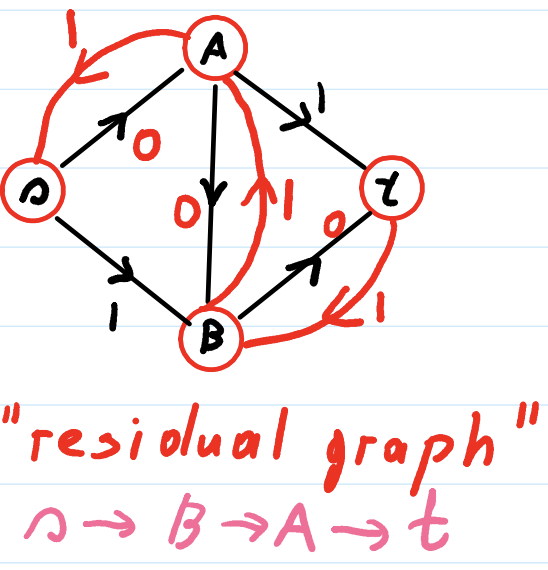 1
A
1
0
s
0
1
0
t
1
B
1
"residual graph"
s → B → A → t